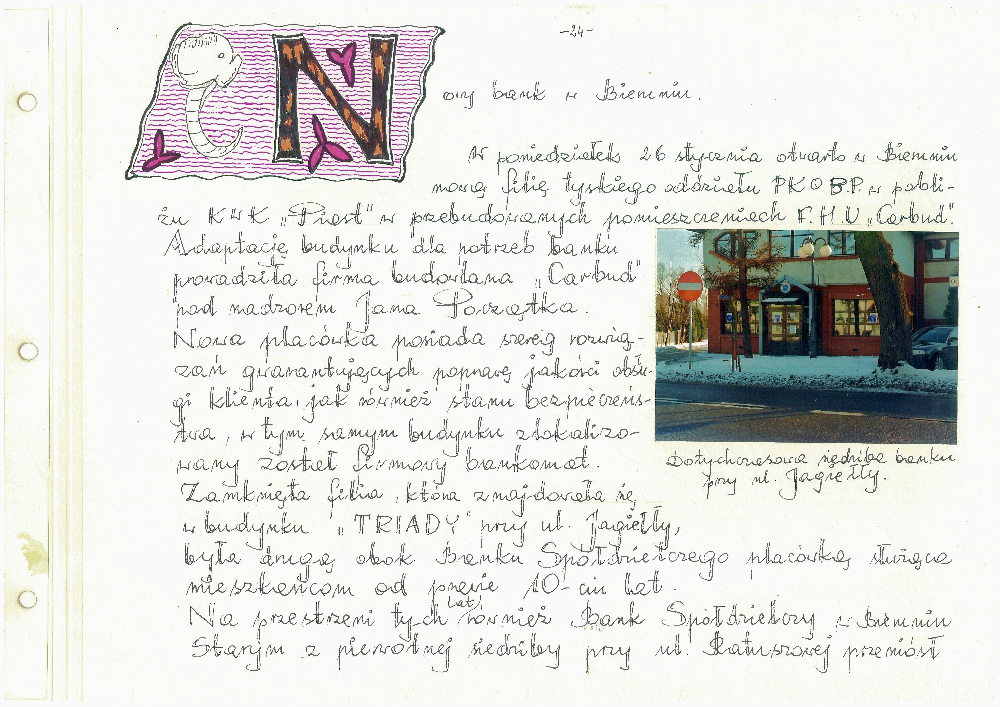 -24-
Nowy bank w Bieruniu.
W poniedziałek 26 stycznia otwarto w Bieruniu
nową filię tyskiego oddziału PKO B.P. w pobli-
żu KWK „Piast" w przebudowanych pomieszczeniach F.H.U „Carbud".
Adaptację budynku dla potrzeb banku
prowadziła firma budowlana „Carbud"
pod nadzorem Jana Początka.
Nowa placówka posiada szereg rozwią-
zań gwarantujących poprawę jakości obsłu-
gi klienta, jak również stanu bezpieczeńs-
twa, w tym samym budynku zlokalizo-
wany został firmowy bankomat.
Dotychczasowa siedziba banku
przy ul. Jagiełły.
Zamknięta filia, która znajdowała się
w budynku „TRIADY" przy ul. Jagiełły,
była drugą obok Banku Spółdzielczego placówką służącą
mieszkańcom od prawie 10-ciu lat.
Na przestrzeni tych lat również Bank Spółdzielczy w Bieruniu
Starym z pierwotnej siedziby przy ul. Ratuszowej przeniósł